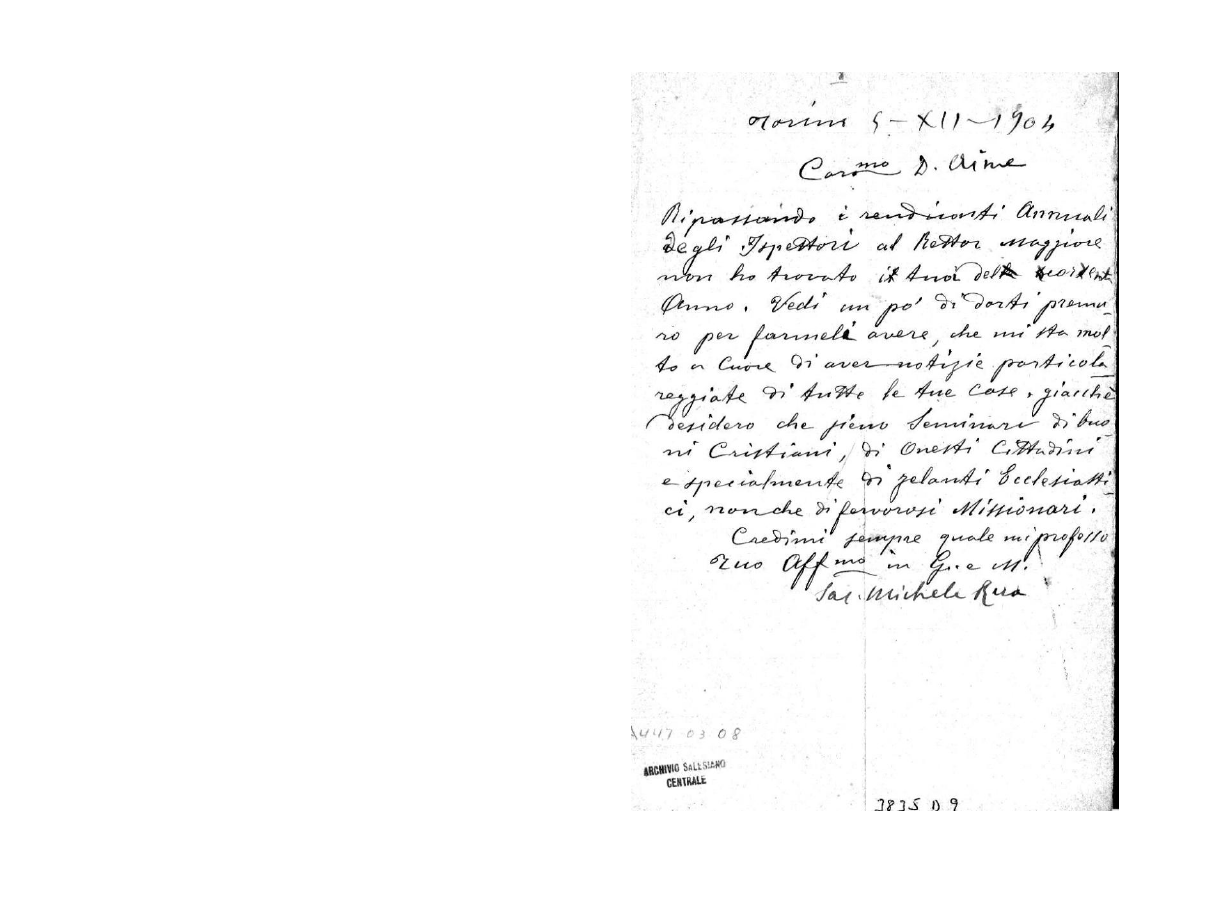 Torino 5-XII-1904
Car.mo D. Aime
Ripassando i rendiconti Annuali
degli Ispettori al Rettor Maggiore
non ho trovato i tuoi del
Anno. Vedi un po' di darti premu
ro per farmeli avere, che mi sta mol
to a Cuore di aver notizie particola
reggiate di tutte le tue Case, giacchè
desidero che sieno Seminari di buo
ni Cristiani, di Onesti Cittadini
e specialmente di zelanti Ecclesiasti
ci, non che di fervorosi Missionari.
Credimi sempre quale mi professo
Tuo Aff.mo in G. e M.
Sac. Michele Rua
A447 03 08
ARCHIVIO SALESIANO
CENTRALE
3835 D 9